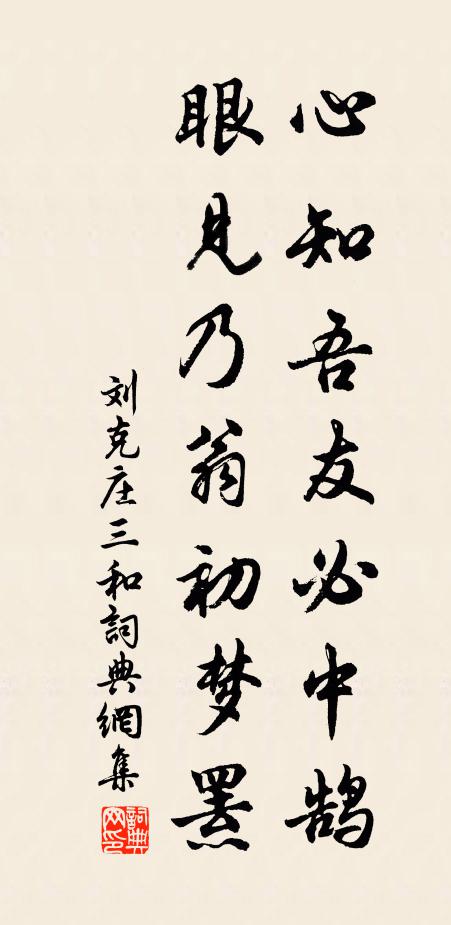 心知吾友必中鹄
眼见乃翁初梦罴
刘克庄三和詞典網集
詞典
网印